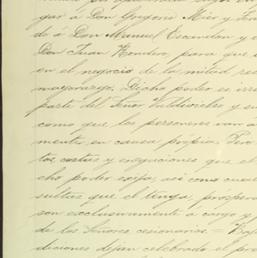 gar á Don Gregorio Mier y
dó á Don Manuel Escandon y
Don Juan Rondero, para que
en el negocio de la mitad res
mayorazgo. Dicho poder es irre
parte del Señor Valdivielso y su
como que las personeros van a
mente en causa propia. Pero
tos costas y erogaciones que el
cho poder exija, así como cual
sultas que él tenga, prósper
son exclusivamente á cargo y
de los Señores cesionarios = Baj
diciones dejan celebrado el pre